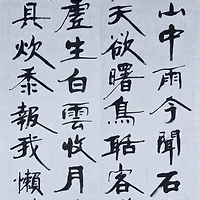 山中雨今聞石
天欲曙鳥聒客
虛生白雲收月
具炊黍報我懶